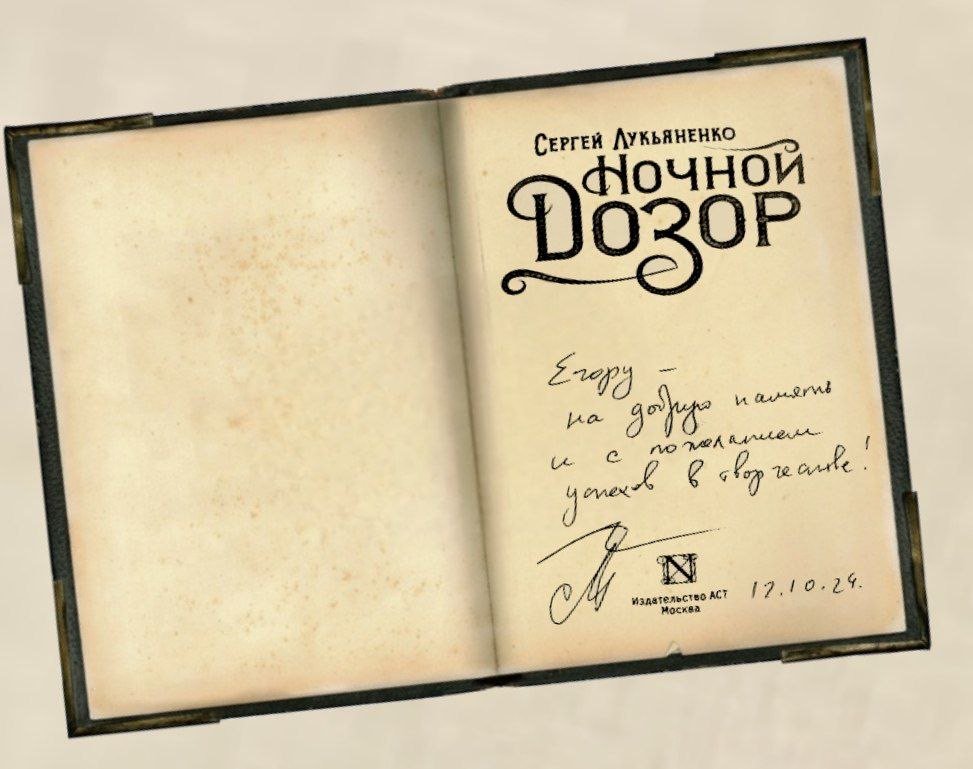 Сергей Лукьяненко
Ночной
Дозор
Егору –
на добрую память
и с пожеланием
успехов в творчестве!
N
Издательство АСТ
Москва
12.10.24.